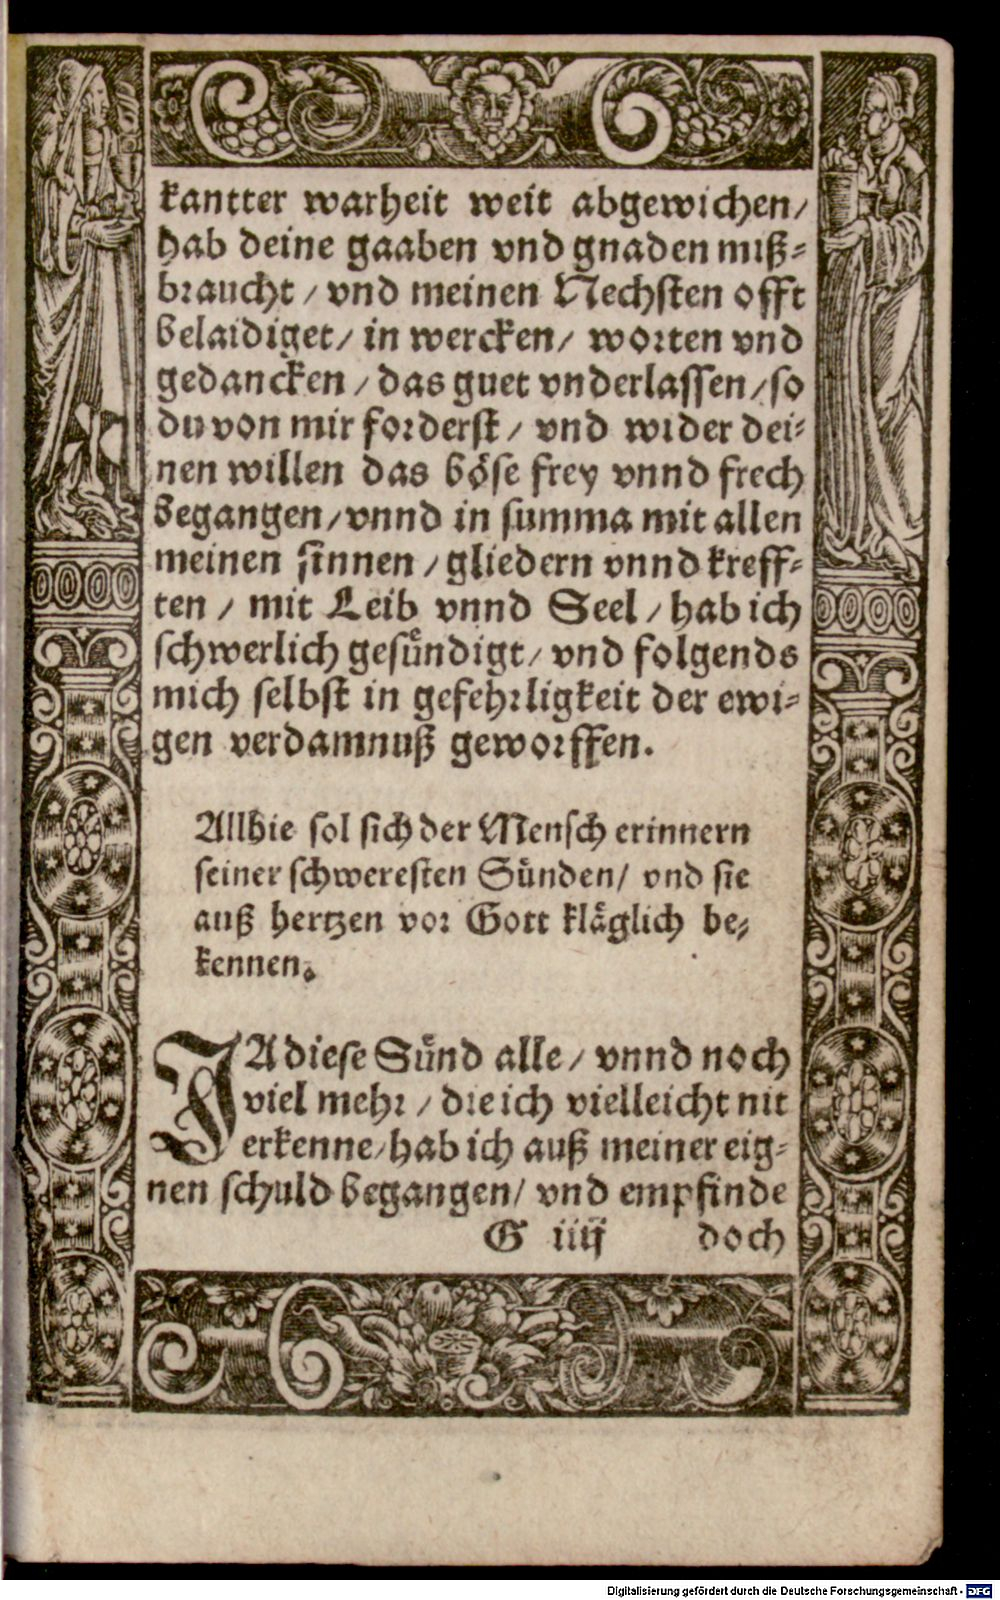 kantter warheit weit abgewichen/
hab deine gaaben vnd gnaden miß-
braucht / vnd meinen Nechsten offt
belaidiget/ in wercken/ worten vnd
gedancken / das guet vnderlassen/ so
du von mir forderst / vnd wider dei-
nen willen das böse frey vnnd frech
begangen/ vnnd in summa mit allen
meinen sinnen / gliedern vnnd kreff-
ten / mit Leib vnnd Seel / hab ich
schwerlich gesündigt/ vnd folgends
mich selbst in gefehrligkeit der ewi-
gen verdamnuß geworffen.
Allhie sol sich der Mensch erinnern
seiner schweresten Sünden/ vnd sie
auß hertzen vor Gott kläglich be-
kennen.
JA diese Sünd alle / vnnd noch
viel mehr / die ich vielleicht nit
erkenne/ hab ich auß meiner eig-
nen schuld begangen/ vnd empfinde
G iiij doch
Digitalisierung gefördert durch die Deutsche Forschungsgemeinschaft - DFG